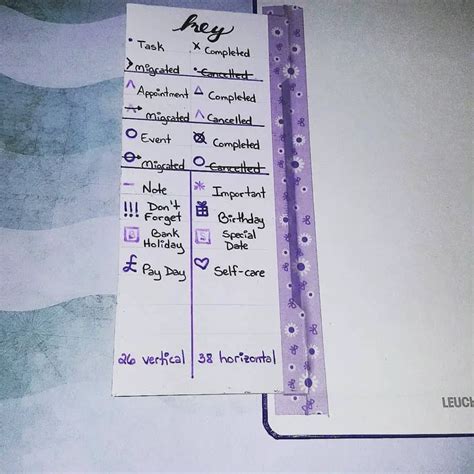 key
• Task x Completed
> Migrated • Cancelled
^ Appointment △ Completed
Migrated ^ Cancelled
O Event Completed
Migrated O Cancelled
– Note * Important
!!! Don't Forget Birthday
Bank Holiday Special Date
£ Pay Day ♡ Self-care
26 vertical 38 horizontal
LEUCH